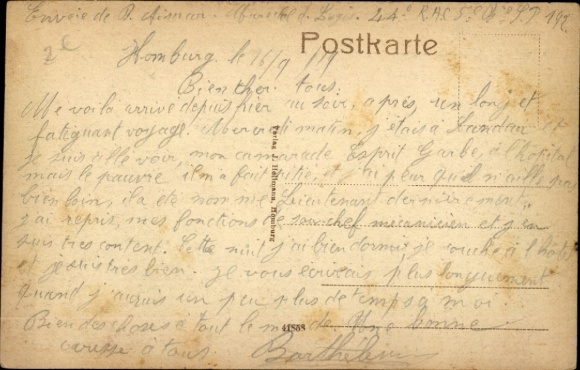 Envoi de P. Aimar. Marechal d. Logis. 24e R.A.C. 5e Bie S.P. 197
Postkarte
Homburg le 16/9/19
Bien cher tous.
Me voila arrive depuis hier au soir, apres un long et
fatiguant voyage. Mercredi matin, j'etais a Landau et
je suis alle voir, mon camarade Esprit Garbe, a l'hopital
mais le pauvre il m'a fait pitie, et j'ai peur qu'il n'aille pas
bien loin, il a ete nomme Lieutenant dernierement
j'ai repris, mes fonctions de sous chef mecanicien et j'en
suis tres content. Cette nuit j'ai bien dormi je couche a l'hotel
et je suis tres bien. Je vous ecrirais plus longuement
quand j'aurais un peu plus de temps a moi.
Bien des choses a tout le monde. Une bonne
caresse a tous. Barthélemy
Verlag J. Hellmann, Homburg
41858